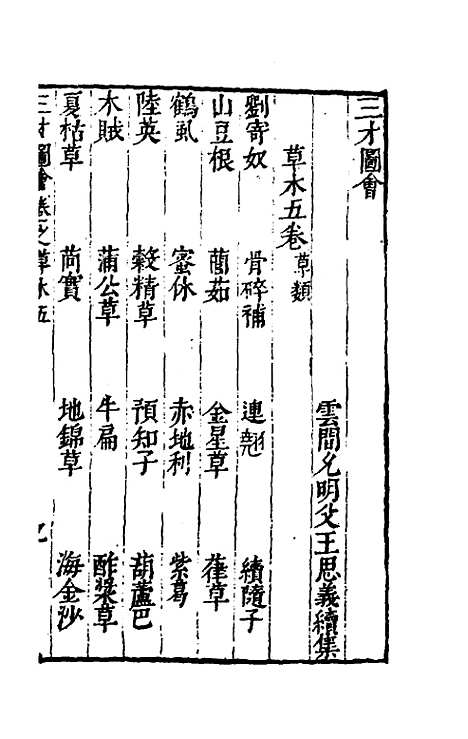 三才圖會
雲間允明父王思義續集
草木五卷 草類
劉寄奴 骨碎補 連翹 續隨子
山豆根 䕡茹 金星草 葎草
鶴虱 蚤休 赤地利 紫葛
陸英 穀精草 預知子 葫蘆巴
木賊 蒲公草 牛扁 酢漿草
夏枯草 苘實 地錦草 海金沙
三才圖會 卷之 草木五